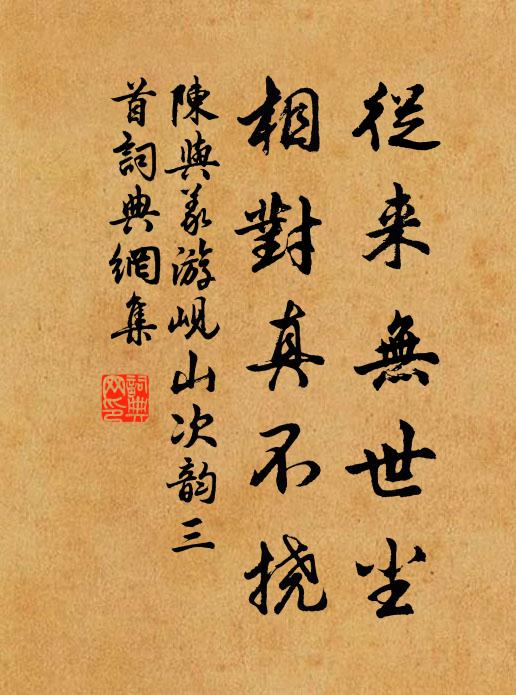 従来無世尘
相對真不挠
陳與義游峴山次韵三
首詞典網集
詞典
网印